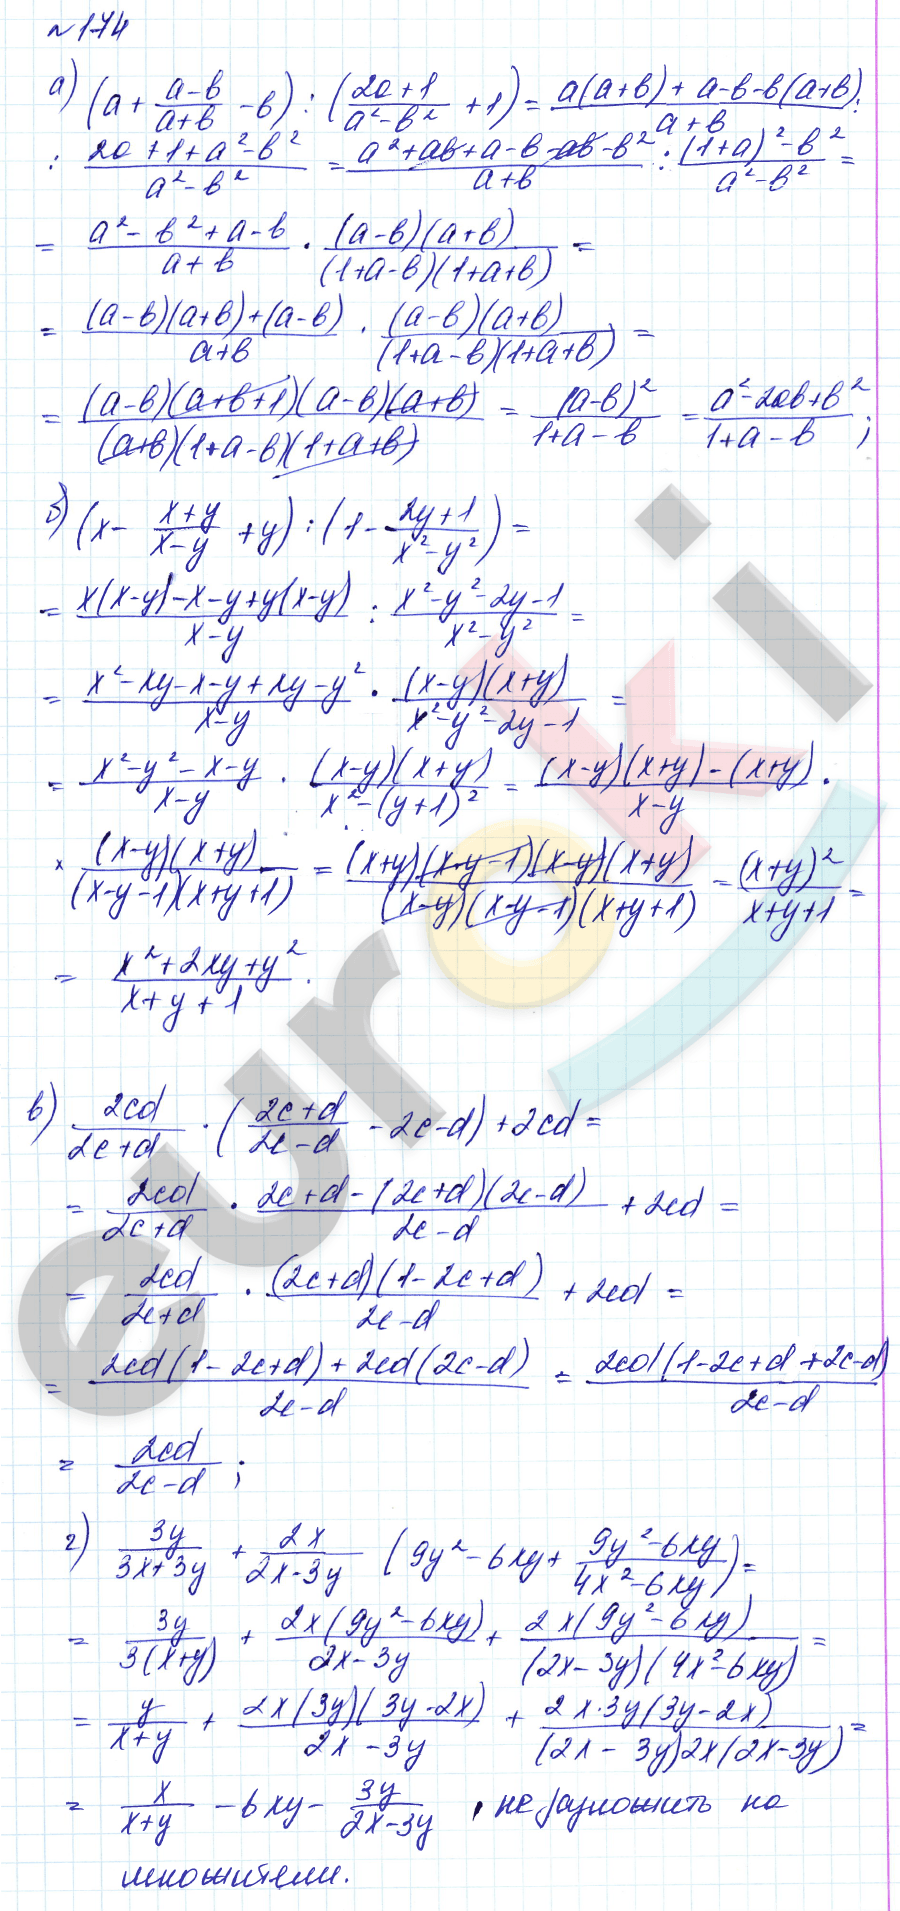 № 174
а) (a + (a-b)/(a+b) - b) : ((2a+1)/(a²-b²) + 1) = (a(a+b) + a-b-b(a+b))/(a+b) :
: (2a+1+a²-b²)/(a²-b²) = (a²+ab+a-b-ab-b²)/(a+b) : ((1+a)²-b²)/(a²-b²) =
= (a²-b²+a-b)/(a+b) · ((a-b)(a+b))/((1+a-b)(1+a+b)) =
= ((a-b)(a+b)+(a-b))/(a+b) · ((a-b)(a+b))/((1+a-b)(1+a+b)) =
= ((a-b)(a+b+1)(a-b)(a+b))/((a+b)(1+a-b)(1+a+b)) = (a-b)²/(1+a-b) = (a²-2ab+b²)/(1+a-b) ;
б) (x - (x+y)/(x-y) + y) : (1 - (2y+1)/(x²-y²)) =
= (x(x-y)-x-y+y(x-y))/(x-y) : (x²-y²-2y-1)/(x²-y²) =
= (x²-xy-x-y+xy-y²)/(x-y) · ((x-y)(x+y))/(x²-y²-2y-1) =
= (x²-y²-x-y)/(x-y) · ((x-y)(x+y))/(x²-(y+1)²) = ((x-y)(x+y)-(x+y))/(x-y) ·
× ((x-y)(x+y))/((x-y-1)(x+y+1)) = ((x+y)(x-y-1)(x-y)(x+y))/((x-y)(x-y-1)(x+y+1)) = (x+y)²/(x+y+1) =
= (x²+2xy+y²)/(x+y+1) .
в) 2cd/(2c+d) · ((2c+d)/(2c-d) - 2c-d) + 2cd =
= 2cd/(2c+d) · (2c+d-(2c+d)(2c-d))/(2c-d) + 2cd =
= 2cd/(2c+d) · ((2c+d)(1-2c+d))/(2c-d) + 2cd =
= (2cd(1-2c+d)+2cd(2c-d))/(2c-d) = (2cd(1-2c+d+2c-d))/(2c-d)
= 2cd/(2c-d) ;
г) 3y/(3x+3y) + 2x/(2x-3y) (9y²-6xy + (9y²-6xy)/(4x²-6xy)) =
= 3y/(3(x+y)) + (2x(9y²-6xy))/(2x-3y) + (2x(9y²-6xy))/((2x-3y)(4x²-6xy)) =
= y/(x+y) + (2x(3y)(3y-2x))/(2x-3y) + (2x·3y(3y-2x))/((2x-3y)2x(2x-3y)) =
= x/(x+y) - 6xy - 3y/(2x-3y) , не разложить на
множители.
euroki